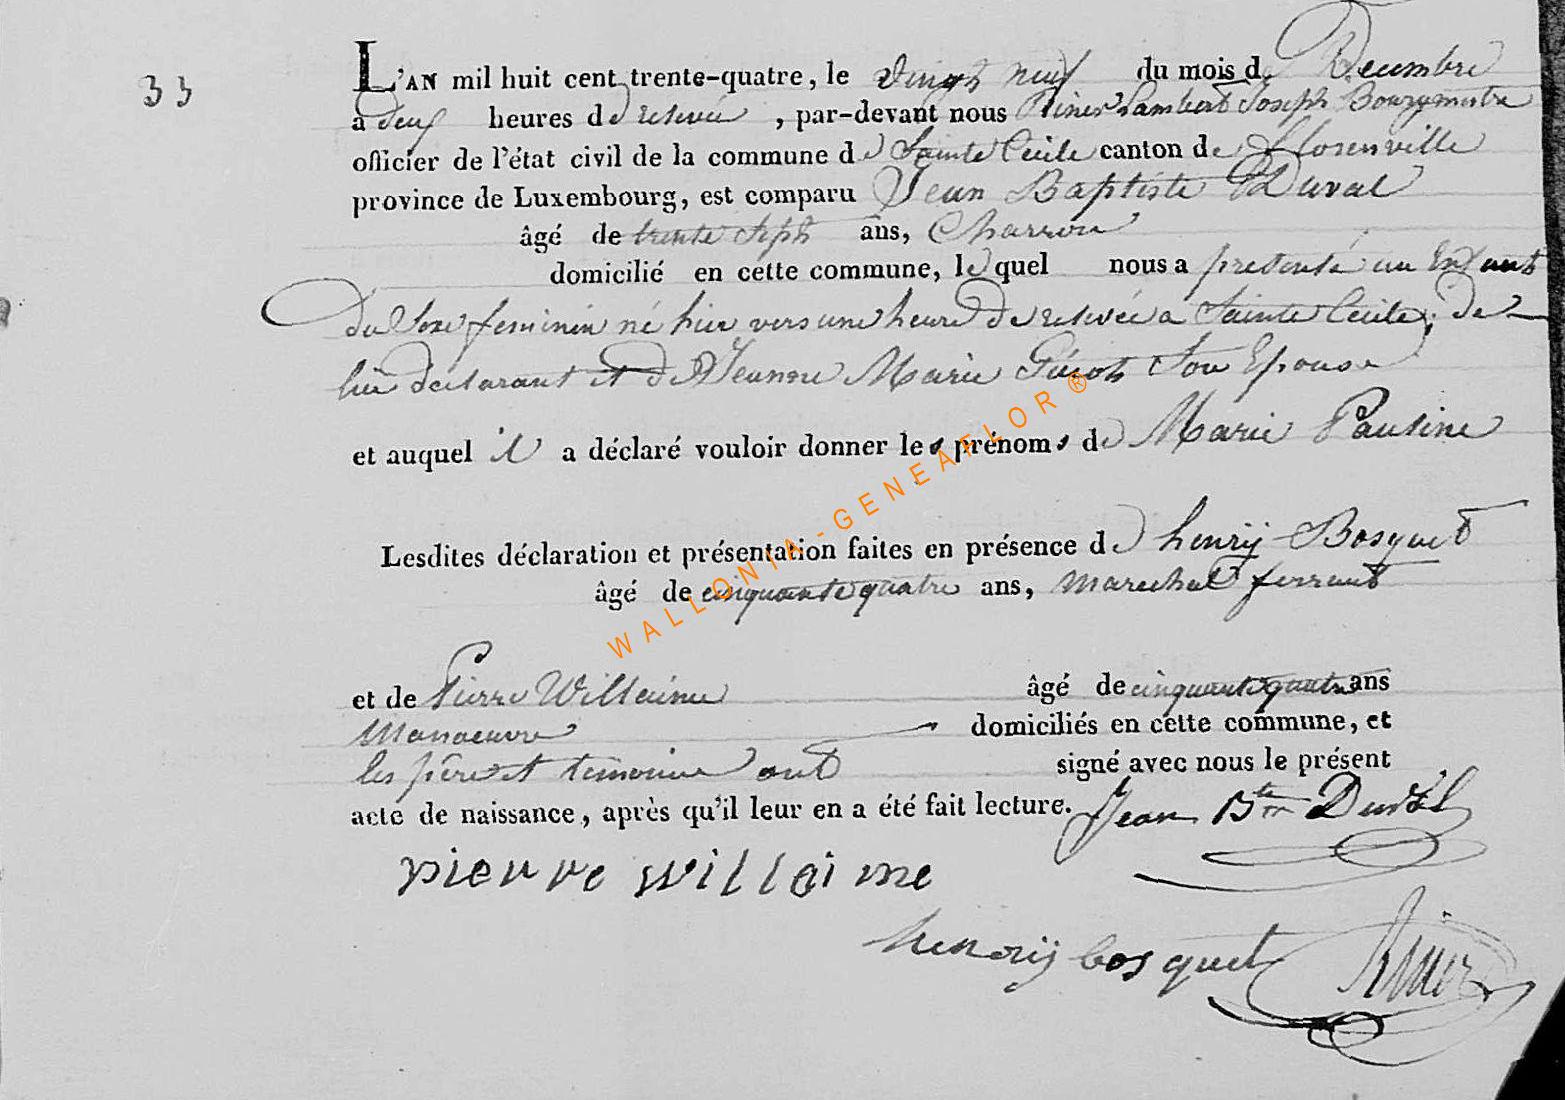 33
L'AN mil huit cent trente-quatre, le Vingt neuf du mois de Decembre
a deux heures de relevée, par-devant nous Riner Lambert Joseph Bourgmestre
officier de l'état civil de la commune de Sainte Cécile canton de Florenville
province de Luxembourg, est comparu Jean Baptiste Duval
âgé de trente sept ans, Charron
domicilié en cette commune, le quel nous a presenté un Enfant
du Sexe feminin né hier vers une heure de relevée a Sainte Cécile, de
lui déclarant et de Jeanne Marie son Epouse
et auquel il a déclaré vouloir donner les prénoms de Marie Pauline
Lesdites déclaration et présentation faites en présence de henrÿ Bosquet
âgé de cinquante quatre ans, marechal ferrant
et de Pierre Willaime âgé de cinquante quatre ans
Manoeuvre domiciliés en cette commune, et
les père et temoins ont signé avec nous le présent
acte de naissance, après qu'il leur en a été fait lecture. Jean Bte Duval
pierre willaime
henrÿ bosquet Riner
WALLONIA-GENEAFLOR®